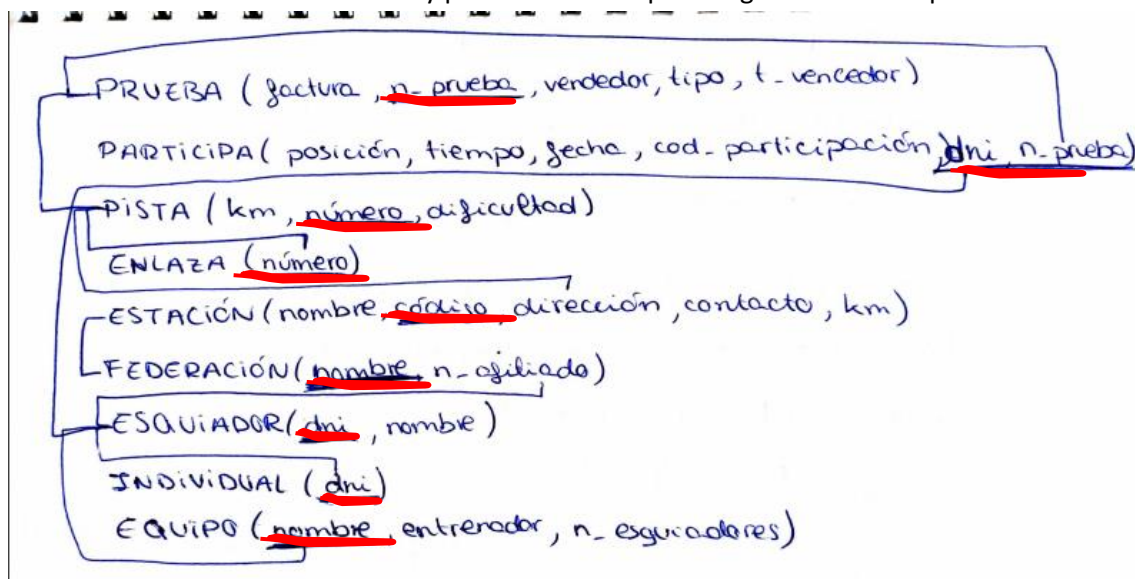 PRUEBA ( factura , n_prueba , vendedor, tipo, t_vencedor )
PARTICIPA ( posición, tiempo, fecha, cod_participación, dni, n_prueba)
PISTA ( km, número, dificultad )
ENLAZA (número)
ESTACIÓN (nombre, código, dirección, contacto, km)
FEDERACIÓN ( nombre, n_afiliado )
ESQUIADOR ( dni , nombre )
INDIVIDUAL ( dni )
EQUIPO ( nombre, entrenador, n_esquiadores )